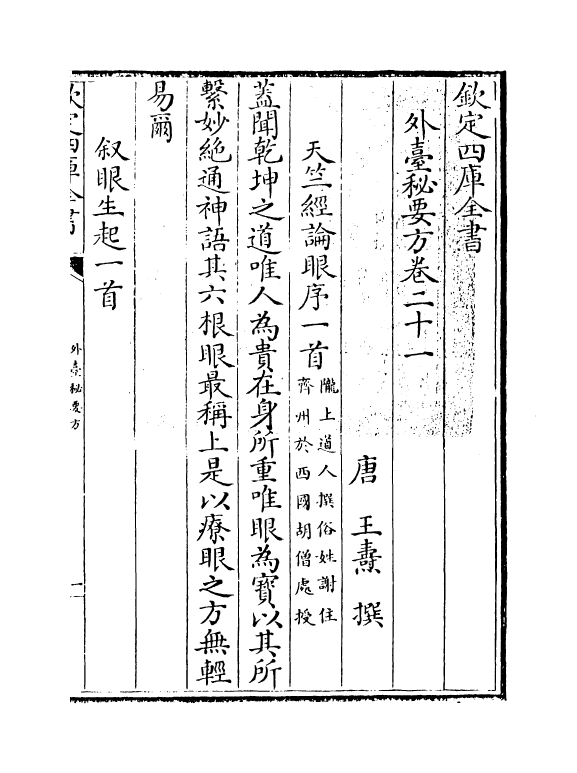 欽定四庫全書
外臺秘要方卷二十一
唐 王燾 撰
天竺經論眼序一首 隴上道人撰俗姓謝住
齊州於西國胡僧處授
蓋聞乾坤之道唯人為貴在身所重唯眼為寶以其所
繫妙絶通神語其六根眼最稱上是以療眼之方無輕
易爾
叙眼生起一首
欽定四庫全書
外臺秘要方
一